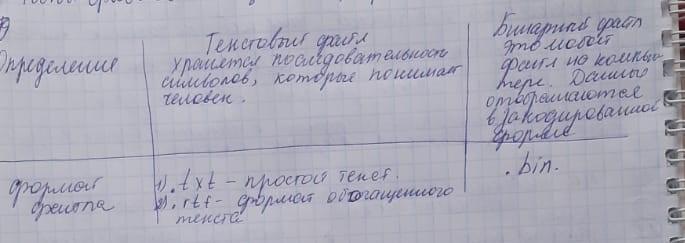 Определение
Текстовый файл
хранится последовательность
символов, которые понимает
человек.
Бинарный файл
это любой
файл на компью
тере. Данные
отображаются
в закодированной
форме
формат
файла
1) .txt – простой текст.
2) .rtf – формат обогащенного
текста
.bin.